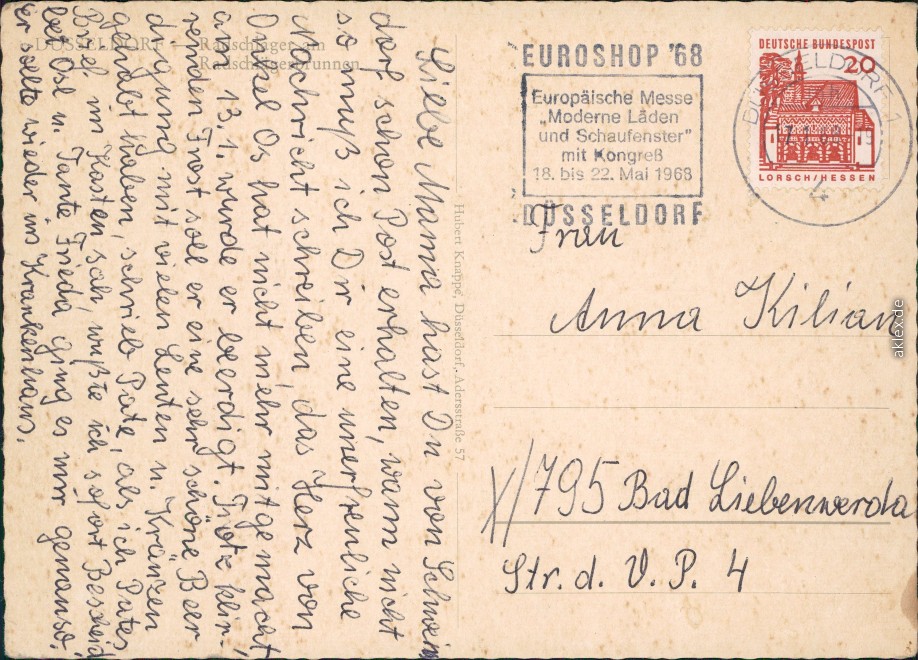 DÜSSELDORF — Radschläger am
Radschlägerbrunnen
Liebe Mama hast Du von Schwein
dorf schon Post erhalten, wann nicht
so muß ich Dir eine unerfreuliche
Nachricht schreiben, das Herz von
Onkel Os hat nicht mehr mitgemacht
am 13.1. wurde er beerdigt. Trotz klir-
renden Frost soll er eine sehr schöne Beer
digung mit vielen Leuten u. Kränzen
gehabt haben, schrieb Pate, als ich Pates
Brief im Kasten sah, wußte ich sofort Bescheid
bei Ose u. Tante Frieda ging es mir genauso.
Er sollte wieder ins Krankenhaus.
Hubert Knappe, Düsseldorf, Adersstraße 57
EUROSHOP '68
Europäische Messe
„Moderne Läden
und Schaufenster"
mit Kongreß
18. bis 22. Mai 1968
DÜSSELDORF
DÜSSELDORF 1
DEUTSCHE BUNDESPOST
20
LORSCH/HESSEN
Frau
Anna Kilian
X/795 Bad Liebenwerda
Str. d. V. P. 4
aklex.de